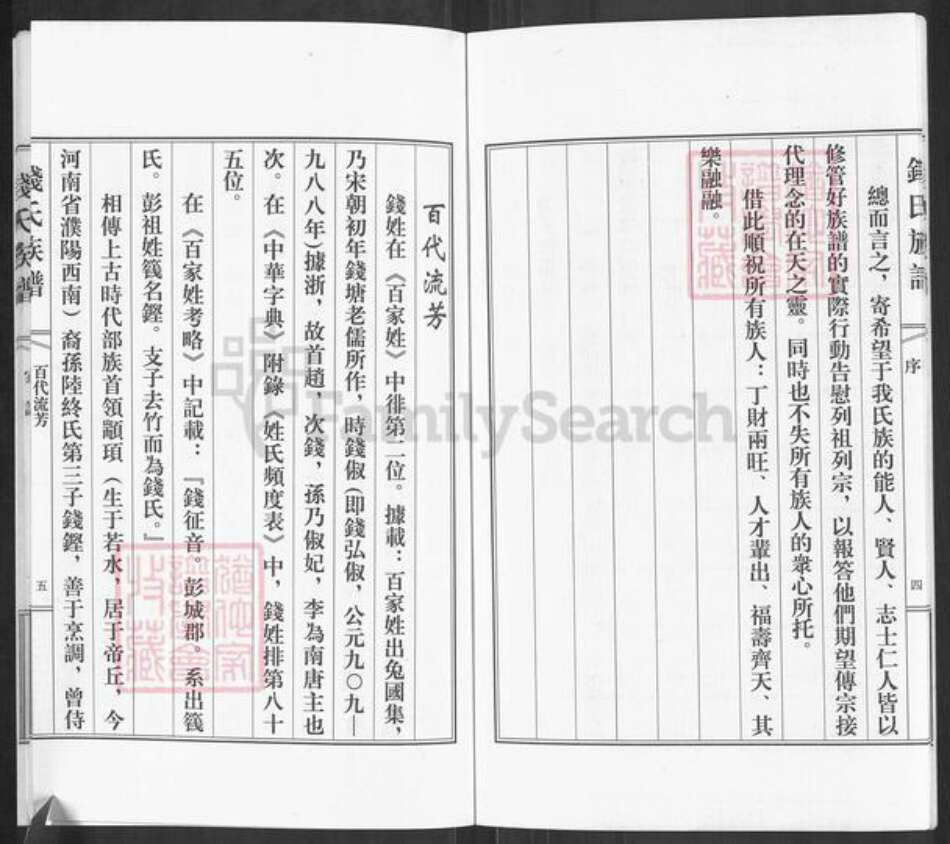 錢氏族譜
序
四
總而言之，寄希望于我氏族的能人、賢人、志士仁人皆以
修管好族譜的實際行動告慰列祖列宗，以報答他們期望傳宗接
代理念的在天之靈。同時也不失所有族人的衆心所托。
借此順祝所有族人：丁財兩旺、人才輩出、福壽齊天、其
樂融融。
百代流芳
錢姓在《百家姓》中徘第二位。據載：百家姓出兔國集，
乃宋朝初年錢塘老儒所作，時錢俶(即錢弘俶，公元九〇九—
九八八年)據浙，故首趙，次錢，孫乃俶妃，李為南唐主也
次。在《中華字典》附錄《姓氏頻度表》中，錢姓排第八十
五位。
在《百家姓考略》中記載：『錢征音。彭城郡。系出篯
氏。彭祖姓篯名鏗。支子去竹而為錢氏。』
相傳上古時代部族首領顓頊（生于若水，居于帝丘，今
河南省濮陽西南）裔孫陸終氏第三子錢鏗，善于烹調，曾侍
錢氏族譜
百代流芳
五
FamilySearch